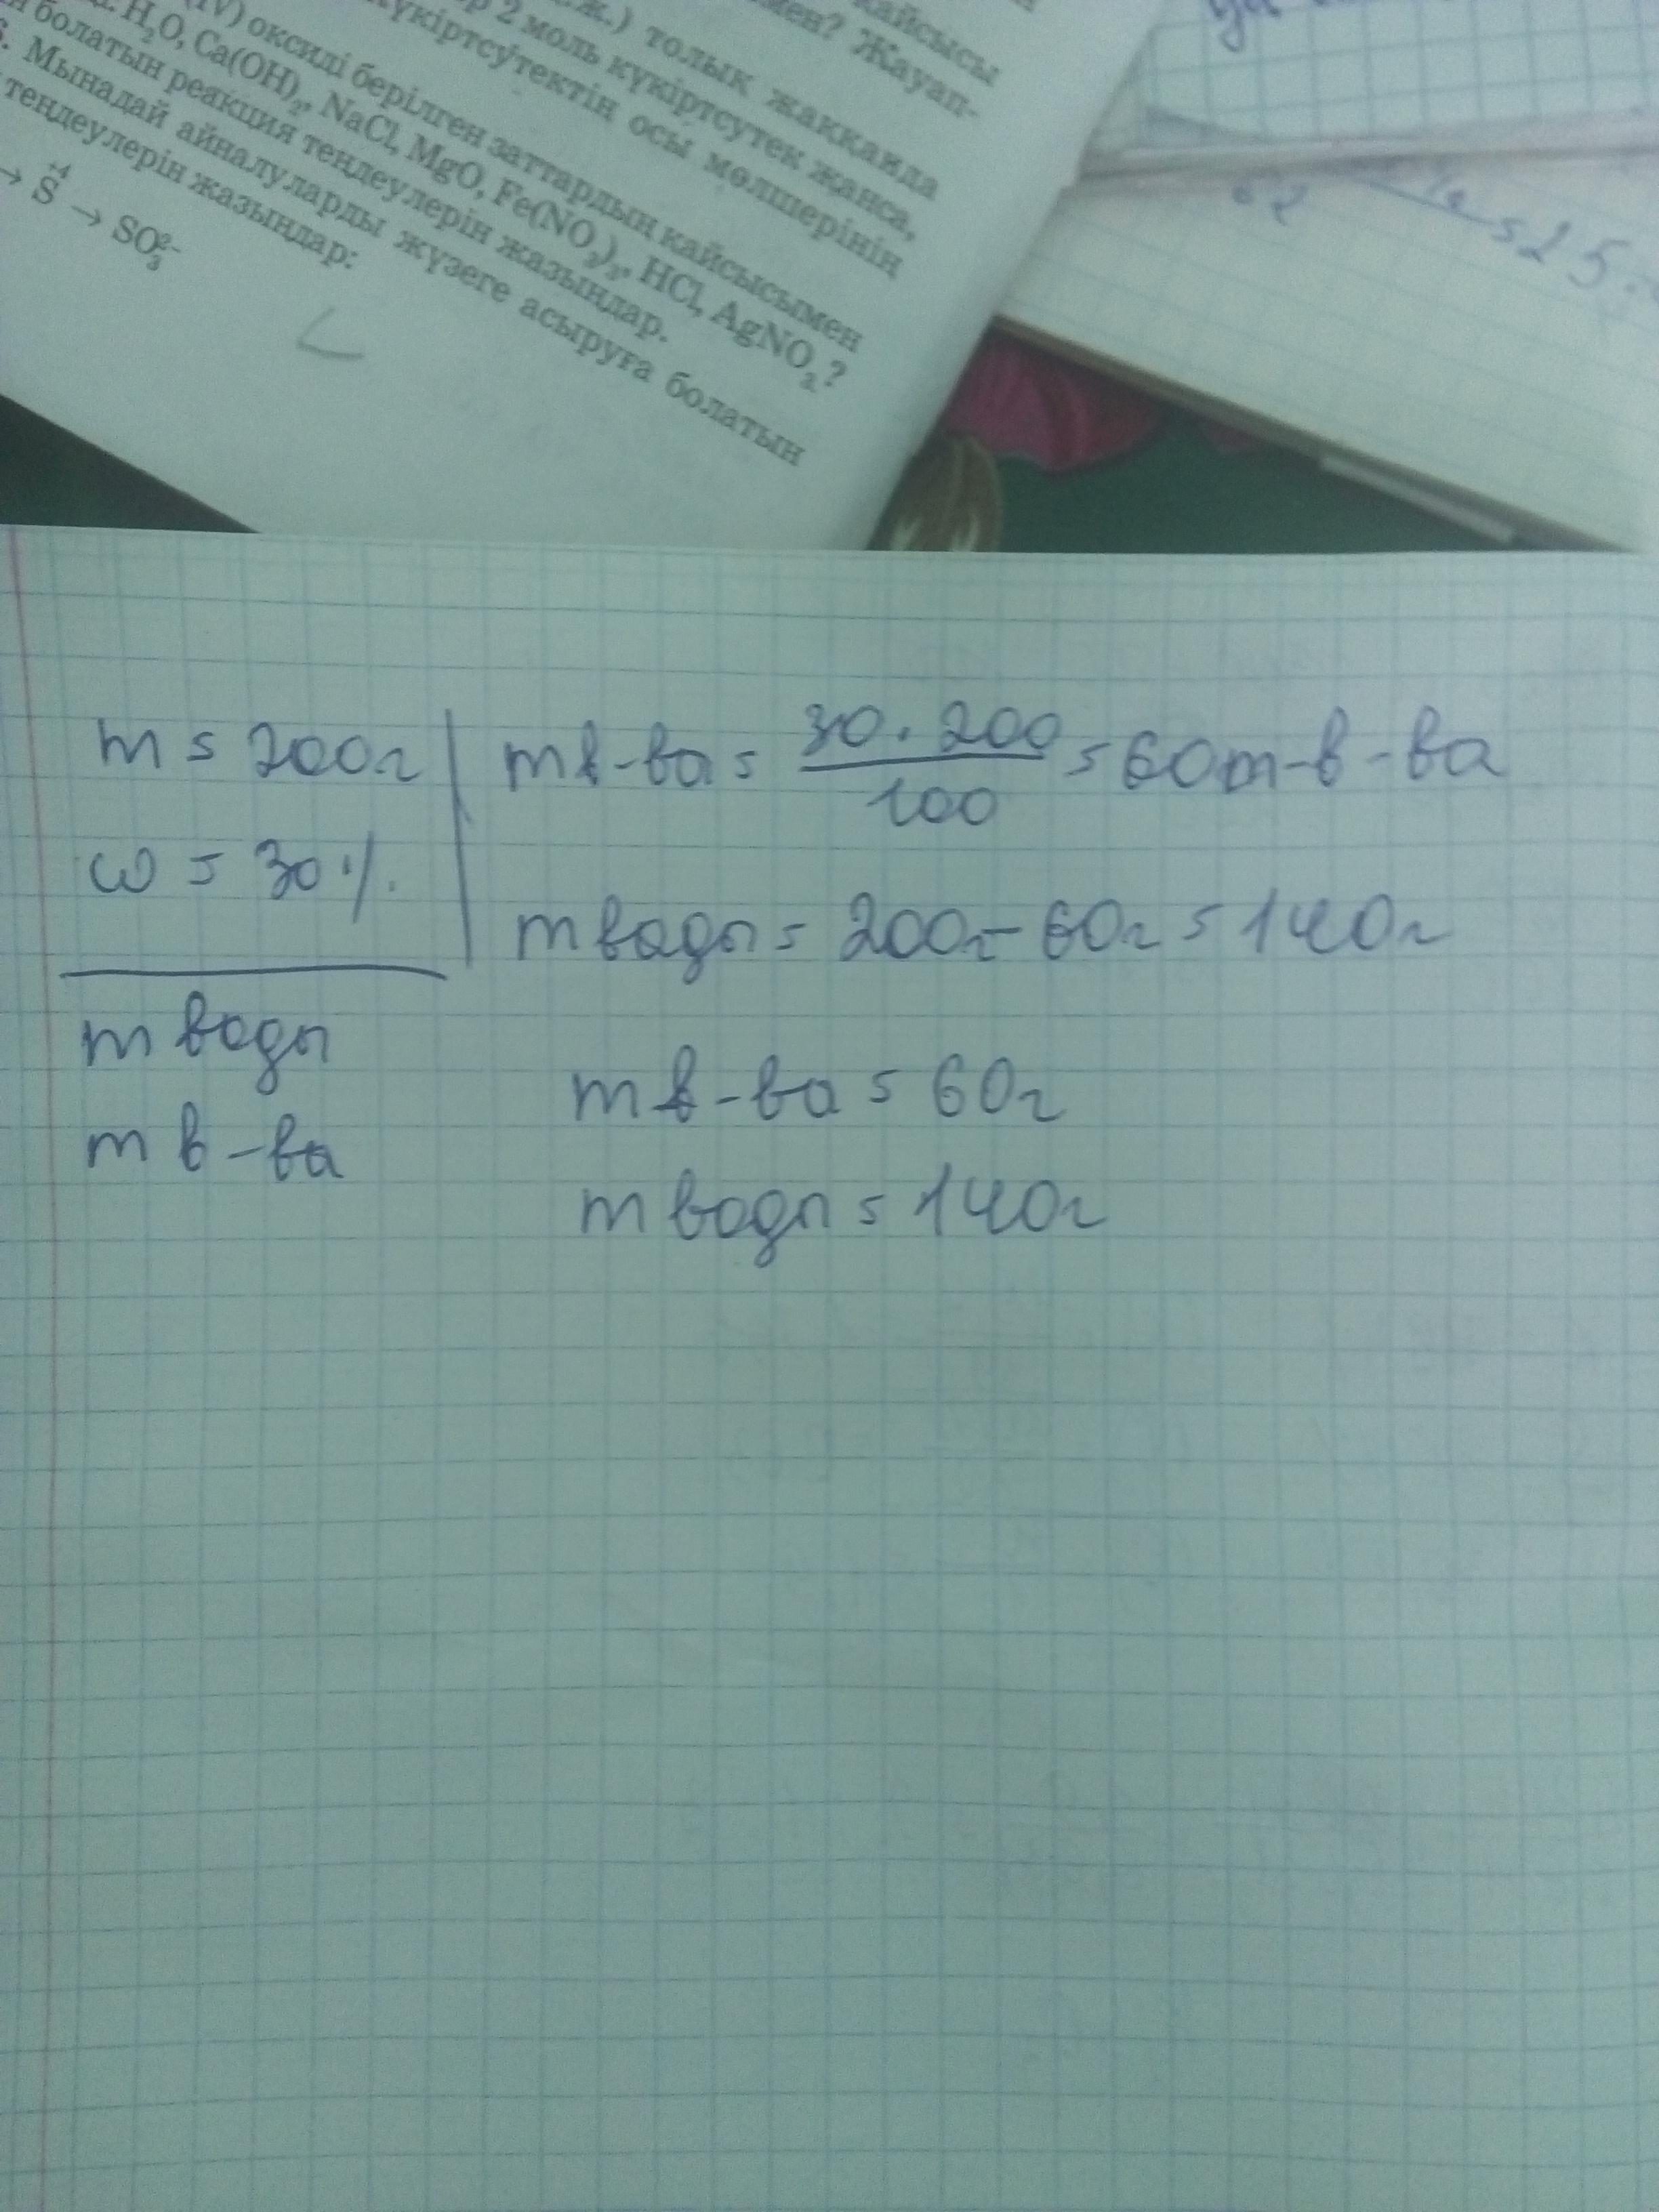 қайсысы
мен? Жауап-
.ж.) толық жаққанда
2 моль күкіртсутек жанса,
күкіртсутектің осы мөлшерінің
(IV) оксиді берілген заттардың қайсысымен
H₂O, Ca(OH)₂, NaCl, MgO, Fe(NO₃)₂, HCl, AgNO₃?
болатын реакция теңдеулерін жазыңдар.
Мынадай айналуларды жүзеге асыруға болатын
теңдеулерін жазыңдар:
→ S⁺⁴ → SO₃²⁻
m = 200г
ω = 30%.
m воды
m в-ва
m в-ва = 30·200/100 = 60 m-в-ва
m воды = 200г - 60г = 140г
m в-ва = 60г
m воды = 140г